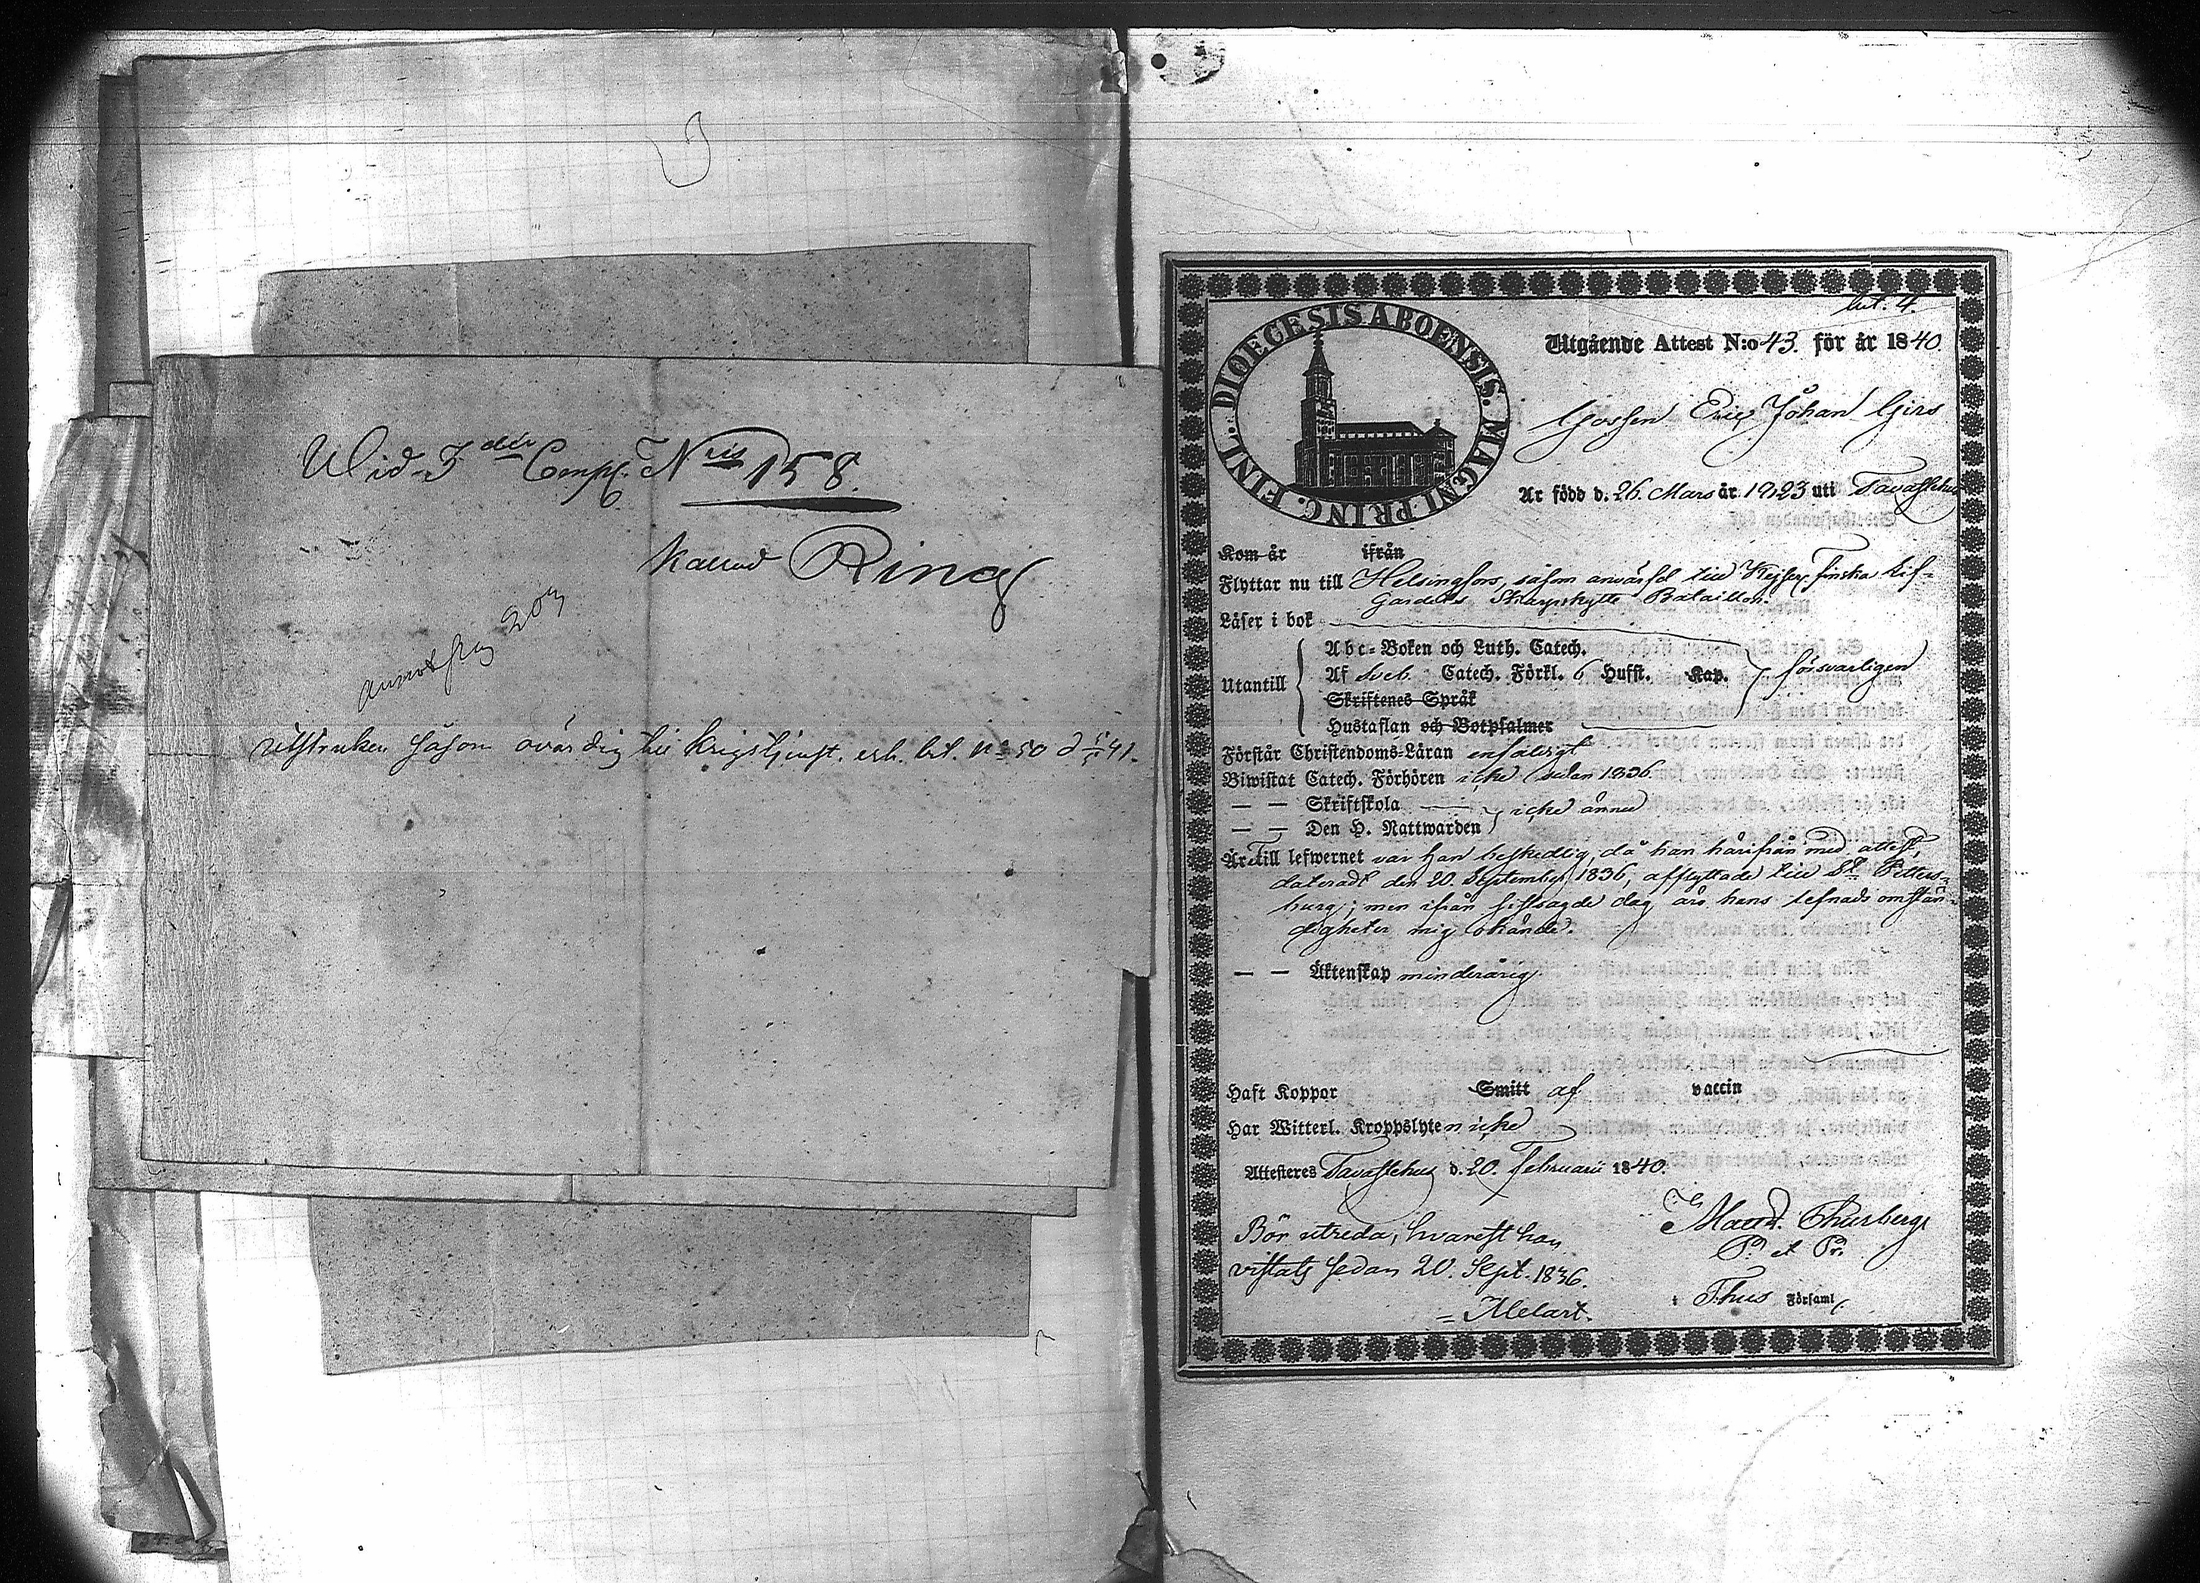 Wid 3die Comp. Nris 158.
kallad Ring
utstruken såsom ovärdig till krigstjenst, enl. bt. No 50 d 41.
Lit. 4.
DIOECESIS ABOENSIS. MAGNI PRINC. FINL.
Utgående Attest N:o 43. för år 1840.
Gossen Eric Johan Girs
Är född d. 26. Mars år 1823 uti Tavastehus
Kom år ifrån
Flyttar nu till Helsingfors, såsom anvärfd till Kejserl. Finska Lif-
Gardets Skarpskytte Bataillon.
Läser i bok
Abc-Boken och Luth. Catech.
Utantill Af Sveb. Catech. Förkl. 6 Hufst. Kap. försvarligen
Skriftenes Språk
Hustaflan och Botpsalmer
Förstår Christendoms-Läran enfaldigt
Biwistat Catech. Förhören icke sedan 1836.
— — Skriftskola
icke ännu
— — Den H. Nattwarden
Är Till lefwernet var han beskedlig, då han härifrån med attest,
dateradt den 20. September 1836, afflyttade till St. Petters-
burg; men ifrån sistsagde dag äro hans lefnads omstän-
digheter mig okände.
— — Äktenskap minderårig.
Haft Koppor Smitt af vaccin
Har Witterl. Kroppslyten icke
Attesteres Tavastehus d. 20. Februarii 1840.
Maur. Thurberg
P. et Pr.
i Thus Församl.
Bör utreda, hvarest han
vistats sedan 20. Sept. 1836.
= Melart.